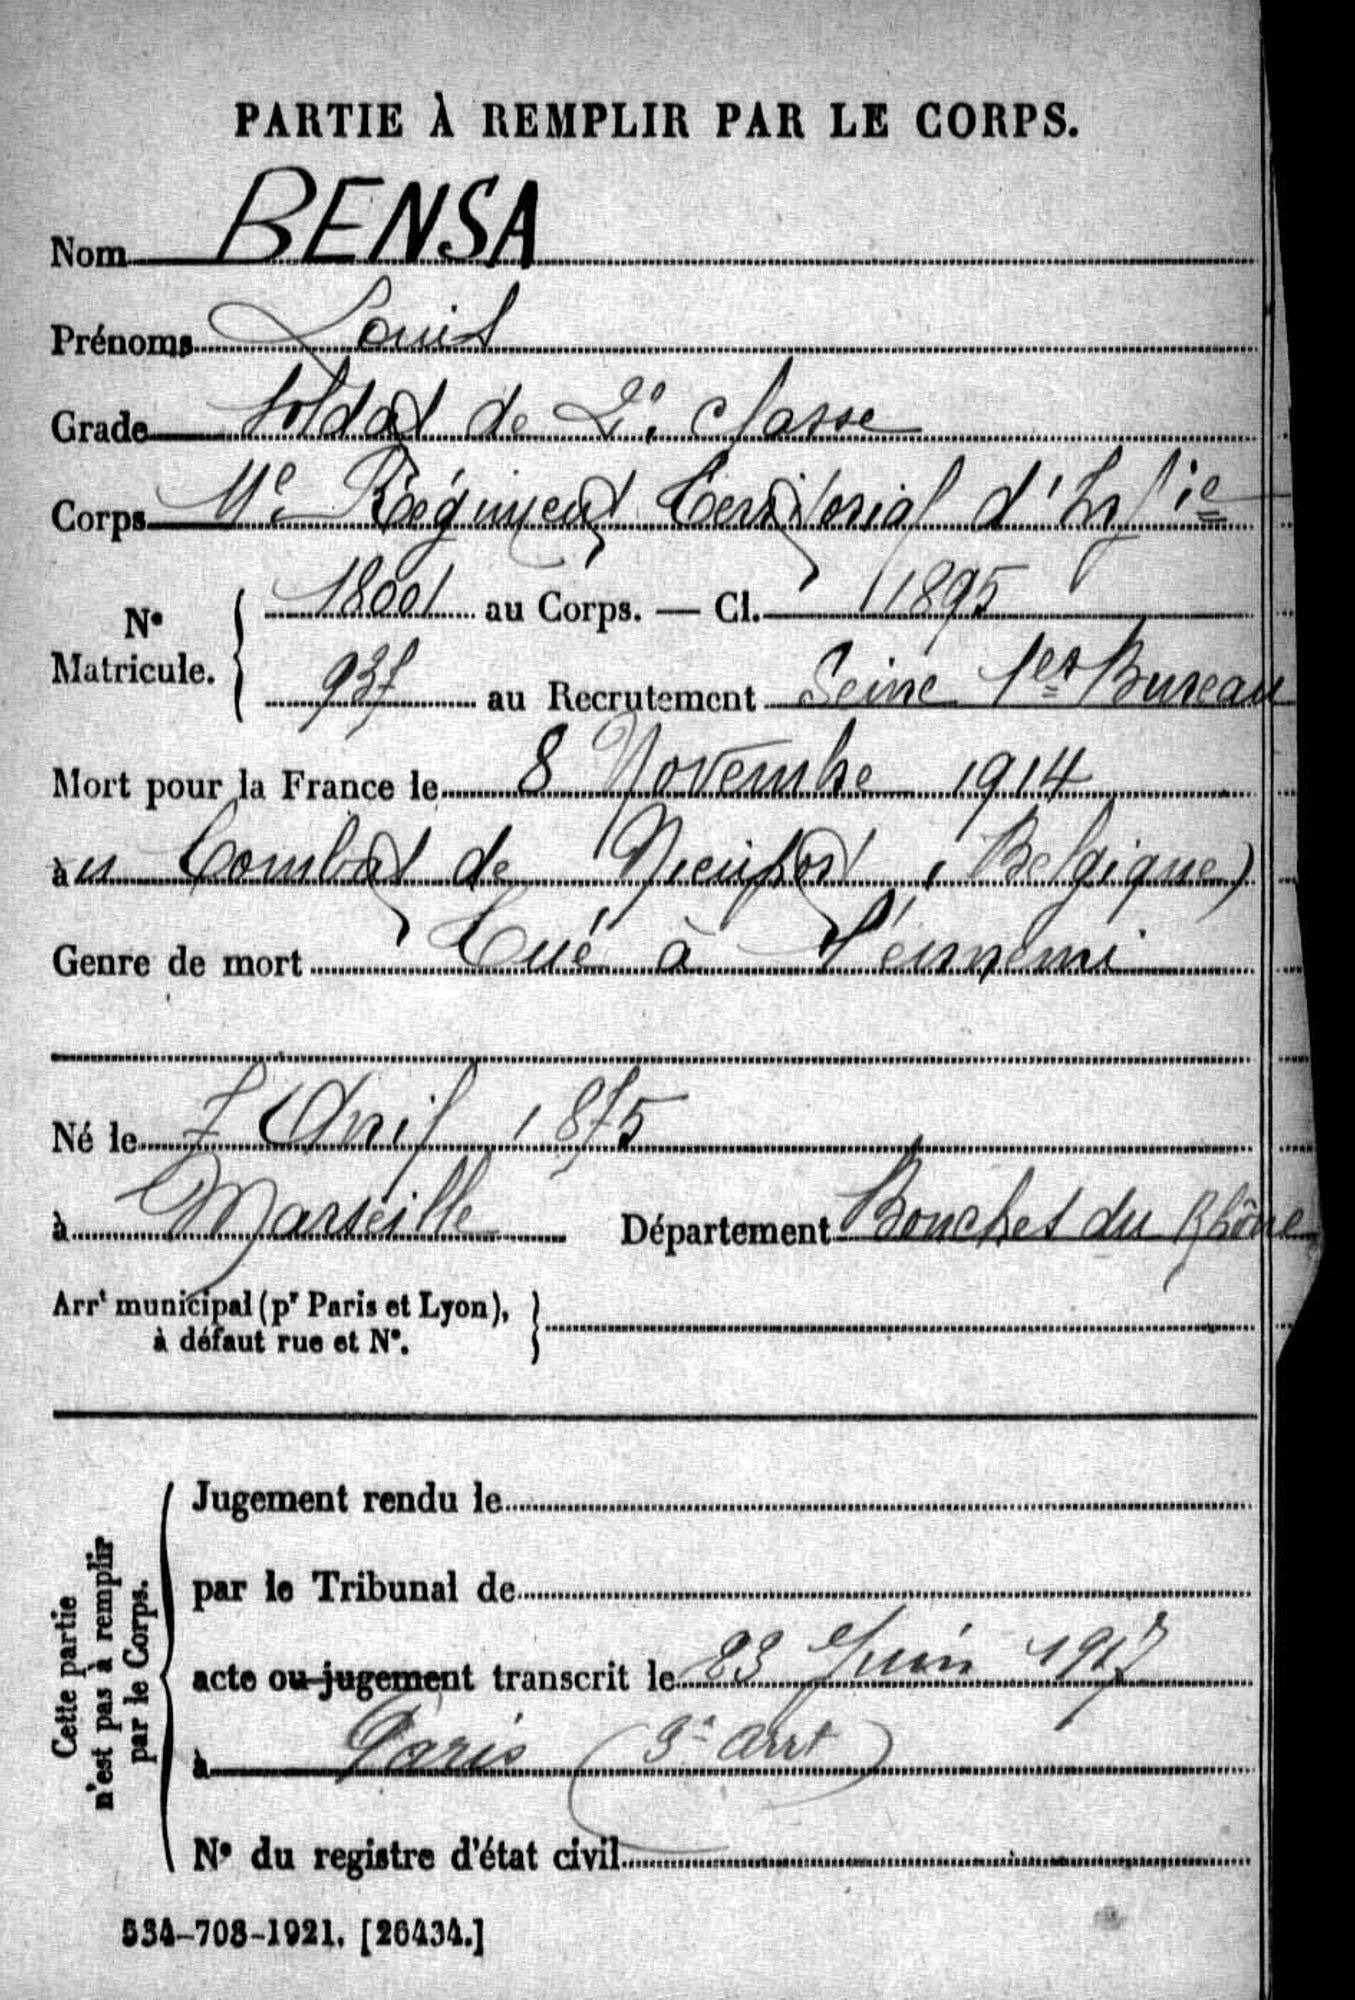 PARTIE À REMPLIR PAR LE CORPS.
Nom BENSA
Prénoms Louis
Grade Soldat de 2e classe
Corps 11e Régiment Territorial d'Infie
No Matricule. { 18001 au Corps. — Cl. 1895
937 au Recrutement Seine 1er Bureau
Mort pour la France le 8 Novembre 1914
au Combat de Nieuport (Belgique)
Genre de mort Tué à l'ennemi
Né le 7 Avril 1875
à Marseille Département Bouches du Rhône
Arrt municipal (pr Paris et Lyon),
à défaut rue et No.
Cette partie
n'est pas à remplir
par le Corps.
Jugement rendu le
par le Tribunal de
acte ou jugement transcrit le 23 Juin 1917
à Paris (3e arrt)
No du registre d'état civil
534-708-1921. [26434.]